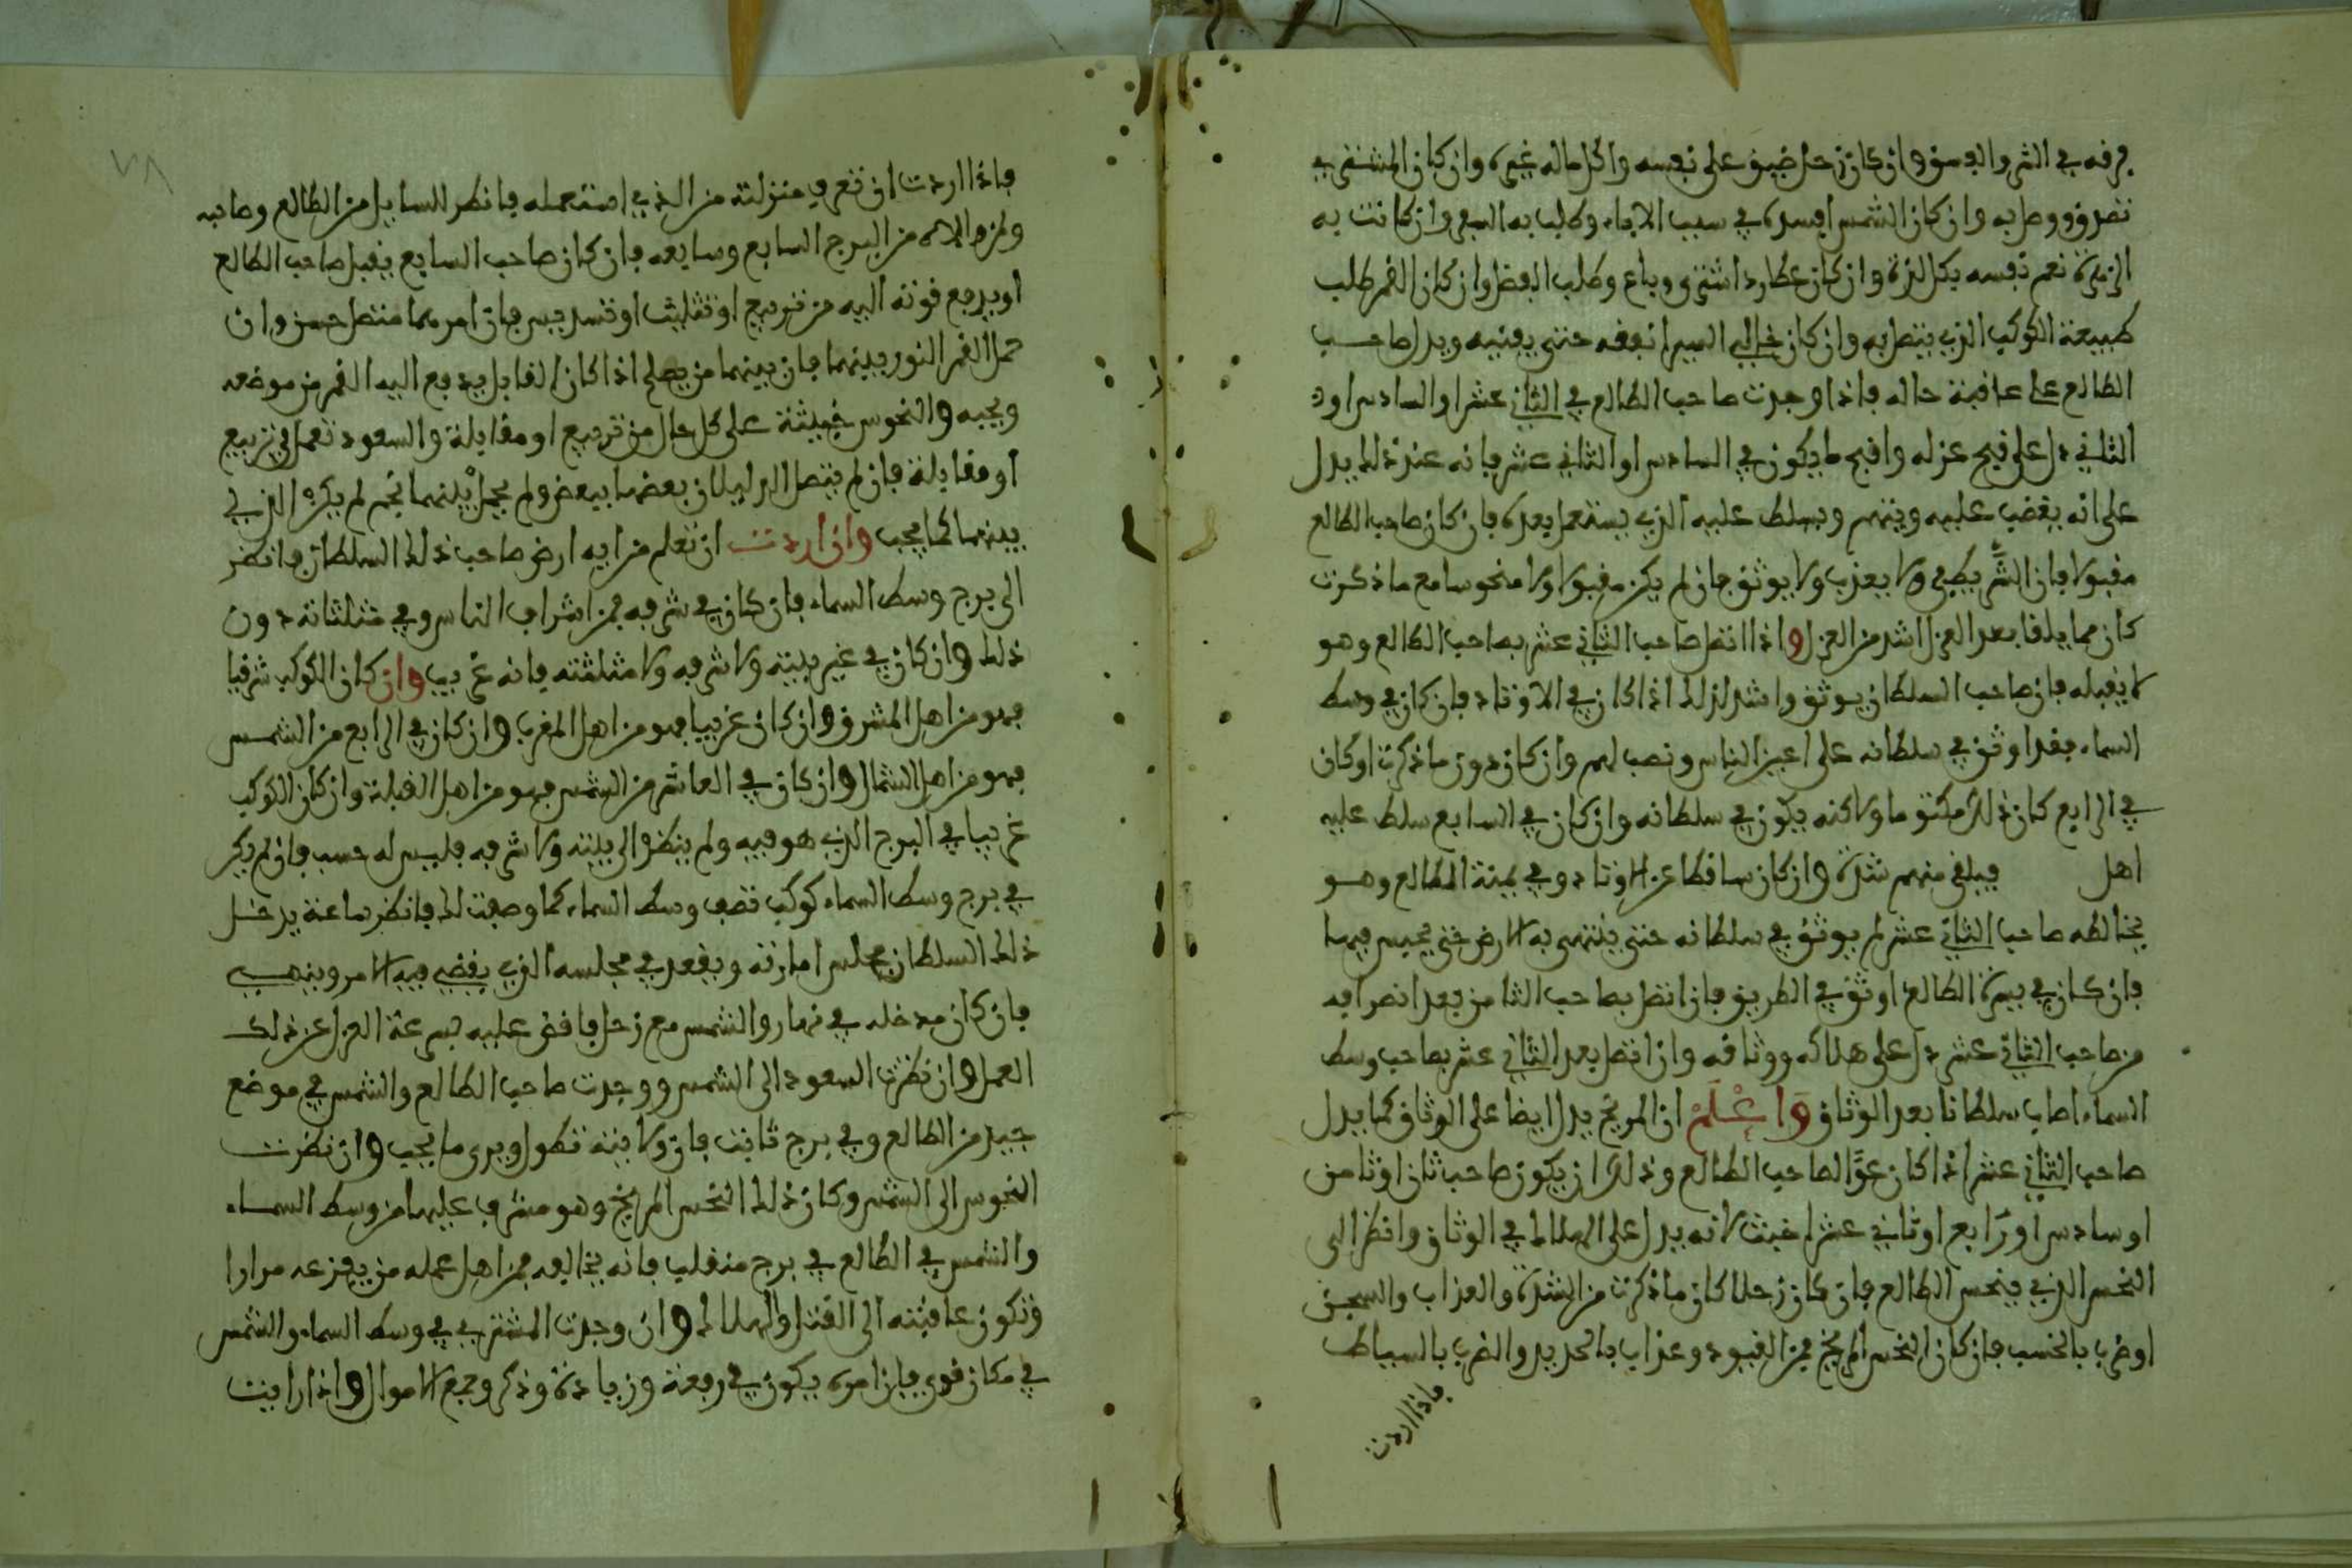 فرقه في الشر والفسق وان كان زحل ضيق على نفسه واكل ماله غيره وان كان المشتري
تصدق ووصل به وان كان الشمس افسده في سبب الاباء وطلب به السعي وان كانت به
الزهرة نعم نفسه بكل لذة وان كان عطارد اشترى وباع وطلب الفضل وان كان القمر طلب
طبيعة الكوكب الذي يتصل به وان كان خالي السير انفقه حتى يفنيه ويدل صاحب
الطالع على عاقبة حاله فاذا وجدت صاحب الطالع في الثاني عشر او السادس او
الثاني دل على قبح عزله واقبح ما يكون في السادس او الثاني عشر فانه عند ذلك يدل
على انه يغضب عليه ويتهم ويسلط عليه الذي يستعمل بعده فان كان صاحب الطالع
مقبولا فان الشر يطفى ولا يعذب ولا يوثق فان لم يكن مقبولا ولا منحوسا مع ما ذكرت
كان مما يلقا بعد العزل اشد من العزل واذا اتصل صاحب الثاني عشر بصاحب الطالع وهو
لا يقبله فان صاحب السلطان يوثق واشد لذلك اذا كان في الاوتاد فان كان في وسط
السماء فقد اوثق في سلطانه على اعين الناس ونصب لهم وان كان دون ما ذكرت او كان
في الرابع كان ذلك مكتوما ولاكنه يكون في سلطانه وان كان في السابع سلط عليه
اهل فيلقى منهم شدة وان كان ساقطا عن الاوتاد وفي يمنة الطالع وهو
يخالطه صاحب الثاني عشر لم يوثق في سلطانه حتى ينتهى به الارض حتى يحبس فيها
فان كان في يسرة الطالع اوثق في الطريق فان اتصل بصاحب الثامن بعد انصرافه
من صاحب الثاني عشر دل على هلاكه ووثاقه وان اتصل بعد الثاني عشر بصاحب وسط
السماء اصاب سلطانا بعد الوثاق وَاعْلَمْ ان المريخ يدل ايضا على الوثاق كما يدل
صاحب الثاني عشر اذا كان عدوا لصاحب الطالع وذلك ان يكون صاحب ثان او ثامن
او سادس او رابع او ثاني عشر اخبث لانه يدل على الهلاك في الوثاق وانظر الى
النحس الذي ينحس الطالع فان كان زحلا كان ما ذكرت من الشدة والعذاب والسجن
او ضرب بالخشب فان كان النحس المريخ فمن القيود وعذاب بالحديد والضرب بالسياط
فاذا اردت
فاذا اردت ان تعرف منزلته من الذي استعمله فانظر السايل من الطالع وصاحبه
ولمن ولاه من البرج السابع وسابعه فان كان صاحب السابع يقبل صاحب الطالع
او يدفع قوته اليه من تربيع او تثليث او تسديس فان امرهما متصل حسن وان
حمل القمر النور بينهما فان بينهما من يصلح اذا كان القابل يدفع اليه القمر من موضعه
ويجبه والنحوس خبيثة على كل حال من تربيع او مقابلة والسعود تعمل في تربيع
او مقابلة فان لم يتصل الدليلان بعضهما ببعض ولم يحمل بينهما نجم لم يكن الذي
بينهما كما يجب وان اردت ان تعلم من اية ارض صاحب ذلك السلطان فانظر
الى برج وسط السماء فان كان في شرفه فمن اشراف الناس وفي مثلثاته دون
ذلك وان كان في غير بيته ولا شرفه ولا مثلثته فانه غريب وان كان الكوكب شرقيا
فهو من اهل المشرق وان كان غربيا فهو من اهل المغرب وان كان في الرابع من الشمس
فهو من اهل الشمال وان كان في العاشر من الشمس فهو من اهل القبلة وان كان الكوكب
غريبا في البرج الذي هو فيه ولم ينظر الى بيته ولا شرفه فليس له حسب فان لم يكن
في برج وسط السماء كوكب نصف وسط السماء كما وصفت لك فانظر ساعة يدخل
ذلك السلطان مجلس امارته ويقعد في مجلسه الذي يقضي فيه الامر وينهي
فان كان مدخله في نهار والشمس مع زحل فاقض عليه بسرعة العزل عن ذلك
العمل وان نظرت السعود الى الشمس ووجدت صاحب الطالع والشمس في موضع
جيد من الطالع وفي برج ثابت فان ولايته تطول ويرى ما يحب وان نظرت
النحوس الى الشمس وكان ذلك النحس المريخ وهو مشرف عليها من وسط السماء
والشمس في الطالع في برج منقلب فانه يخالفه من اهل عمله من يفزعه مرارا
وتكون عاقبته الى القتل والهلاك وان وجدت المشتري في وسط السماء والشمس
في مكان قوي فان امره يكون في رفعة وزيادة وذكر وجمع الاموال واذا رايت